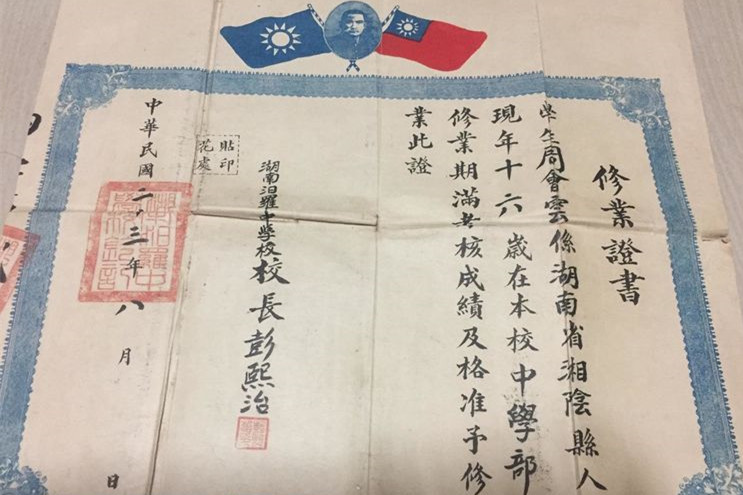 修業證書
學生周會雲係湖南省湘陰縣人
現年十六歲在本校中學部
修業期滿考核成績及格准予修
業此證
湖南汨羅中學校校長彭熙治
貼印
花處
中華民國二十三年八月 日